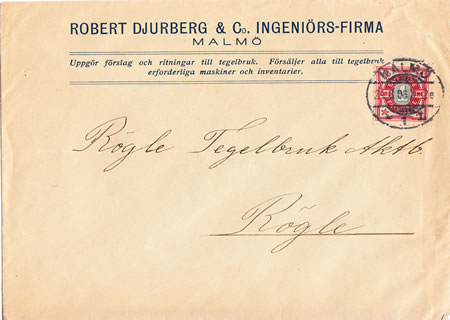 ROBERT DJURBERG & Co. INGENIÖRS-FIRMA
MALMÖ
Uppgör förslag och ritningar till tegelbruk. Försäljer alla till tegelbruk
erforderliga maskiner och inventarier.
MALMÖ
1
Rögle Tegelbruk Aktb.
Rögle